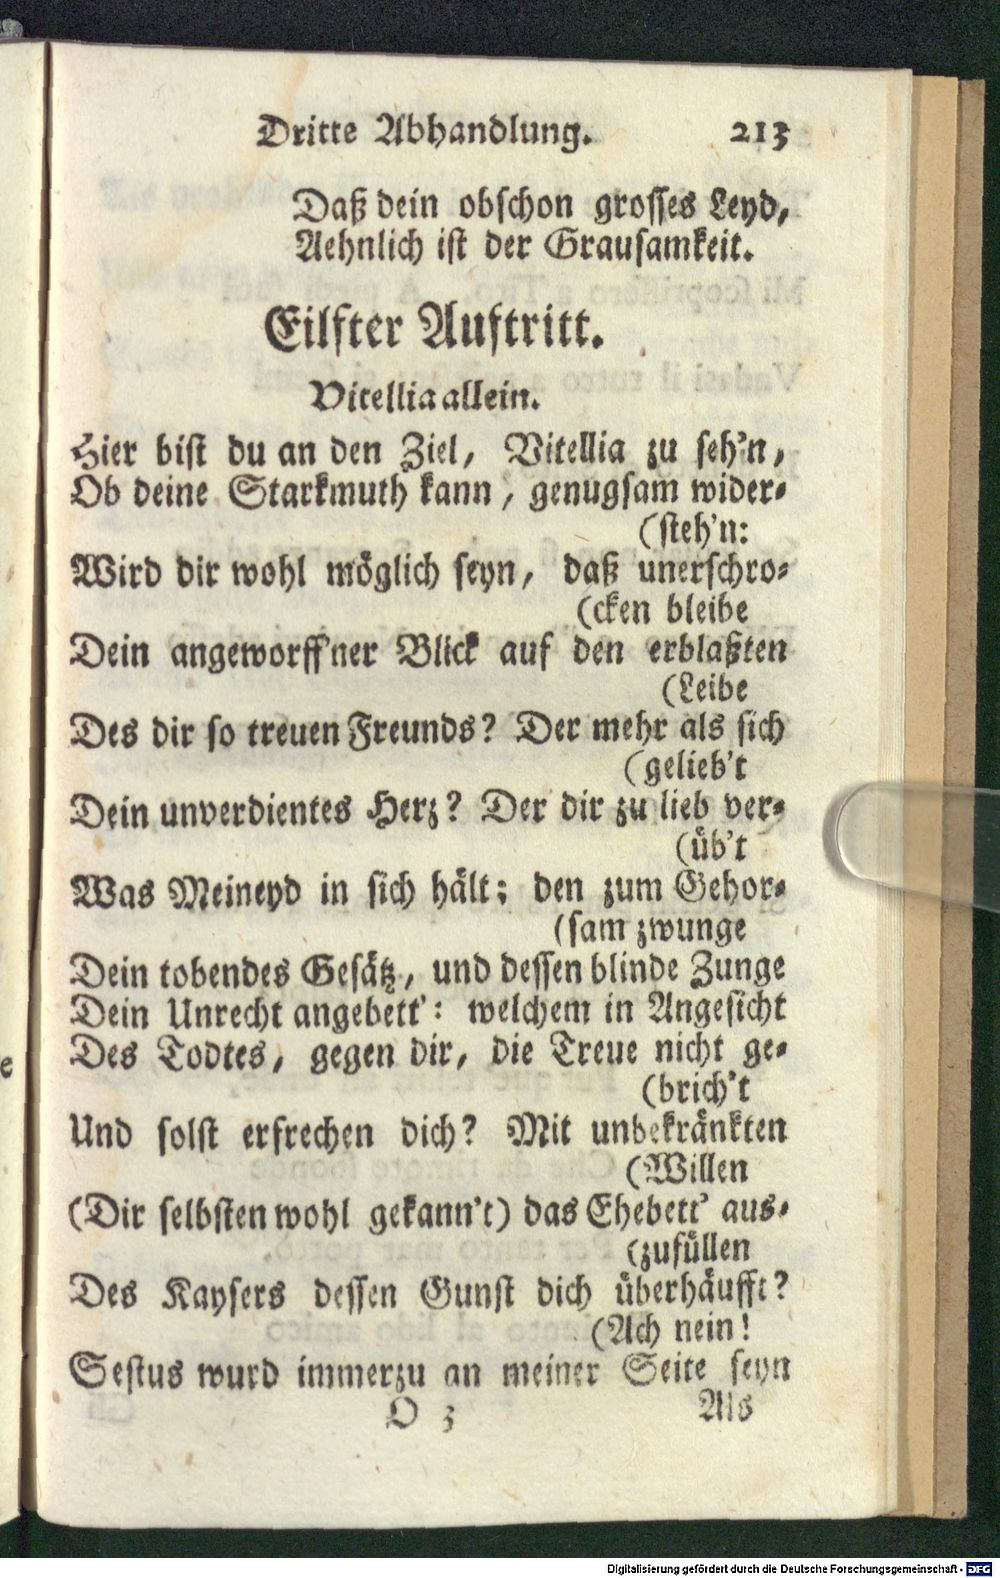 Dritte Abhandlung. 213
Daß dein obschon grosses Leyd,
Aehnlich ist der Grausamkeit.
Eilfter Auftritt.
Vitellia allein.
Hier bist du an den Ziel, Vitellia zu seh'n,
Ob deine Starkmuth kann, genugsam wider-
(steh'n:
Wird dir wohl möglich seyn, daß unerschro-
(cken bleibe
Dein angeworff'ner Blick auf den erblaßten
(Leibe
Des dir so treuen Freunds? Der mehr als sich
(gelieb't
Dein unverdientes Herz? Der dir zu lieb ver-
(üb't
Was Meineyd in sich hält; den zum Gehor-
(sam zwunge
Dein tobendes Gesätz, und dessen blinde Zunge
Dein Unrecht angebett': welchem in Angesicht
Des Todtes, gegen dir, die Treue nicht ge-
(brich't
Und solst erfrechen dich? Mit unbekränkten
(Willen
(Dir selbsten wohl gekann't) das Ehebett' aus-
(zufüllen
Des Kaysers dessen Gunst dich überhäufft?
(Ach nein!
Sestus wurd immerzu an meiner Seite seyn
O 3 Als
e
Digitalisierung gefördert durch die Deutsche Forschungsgemeinschaft - DFG